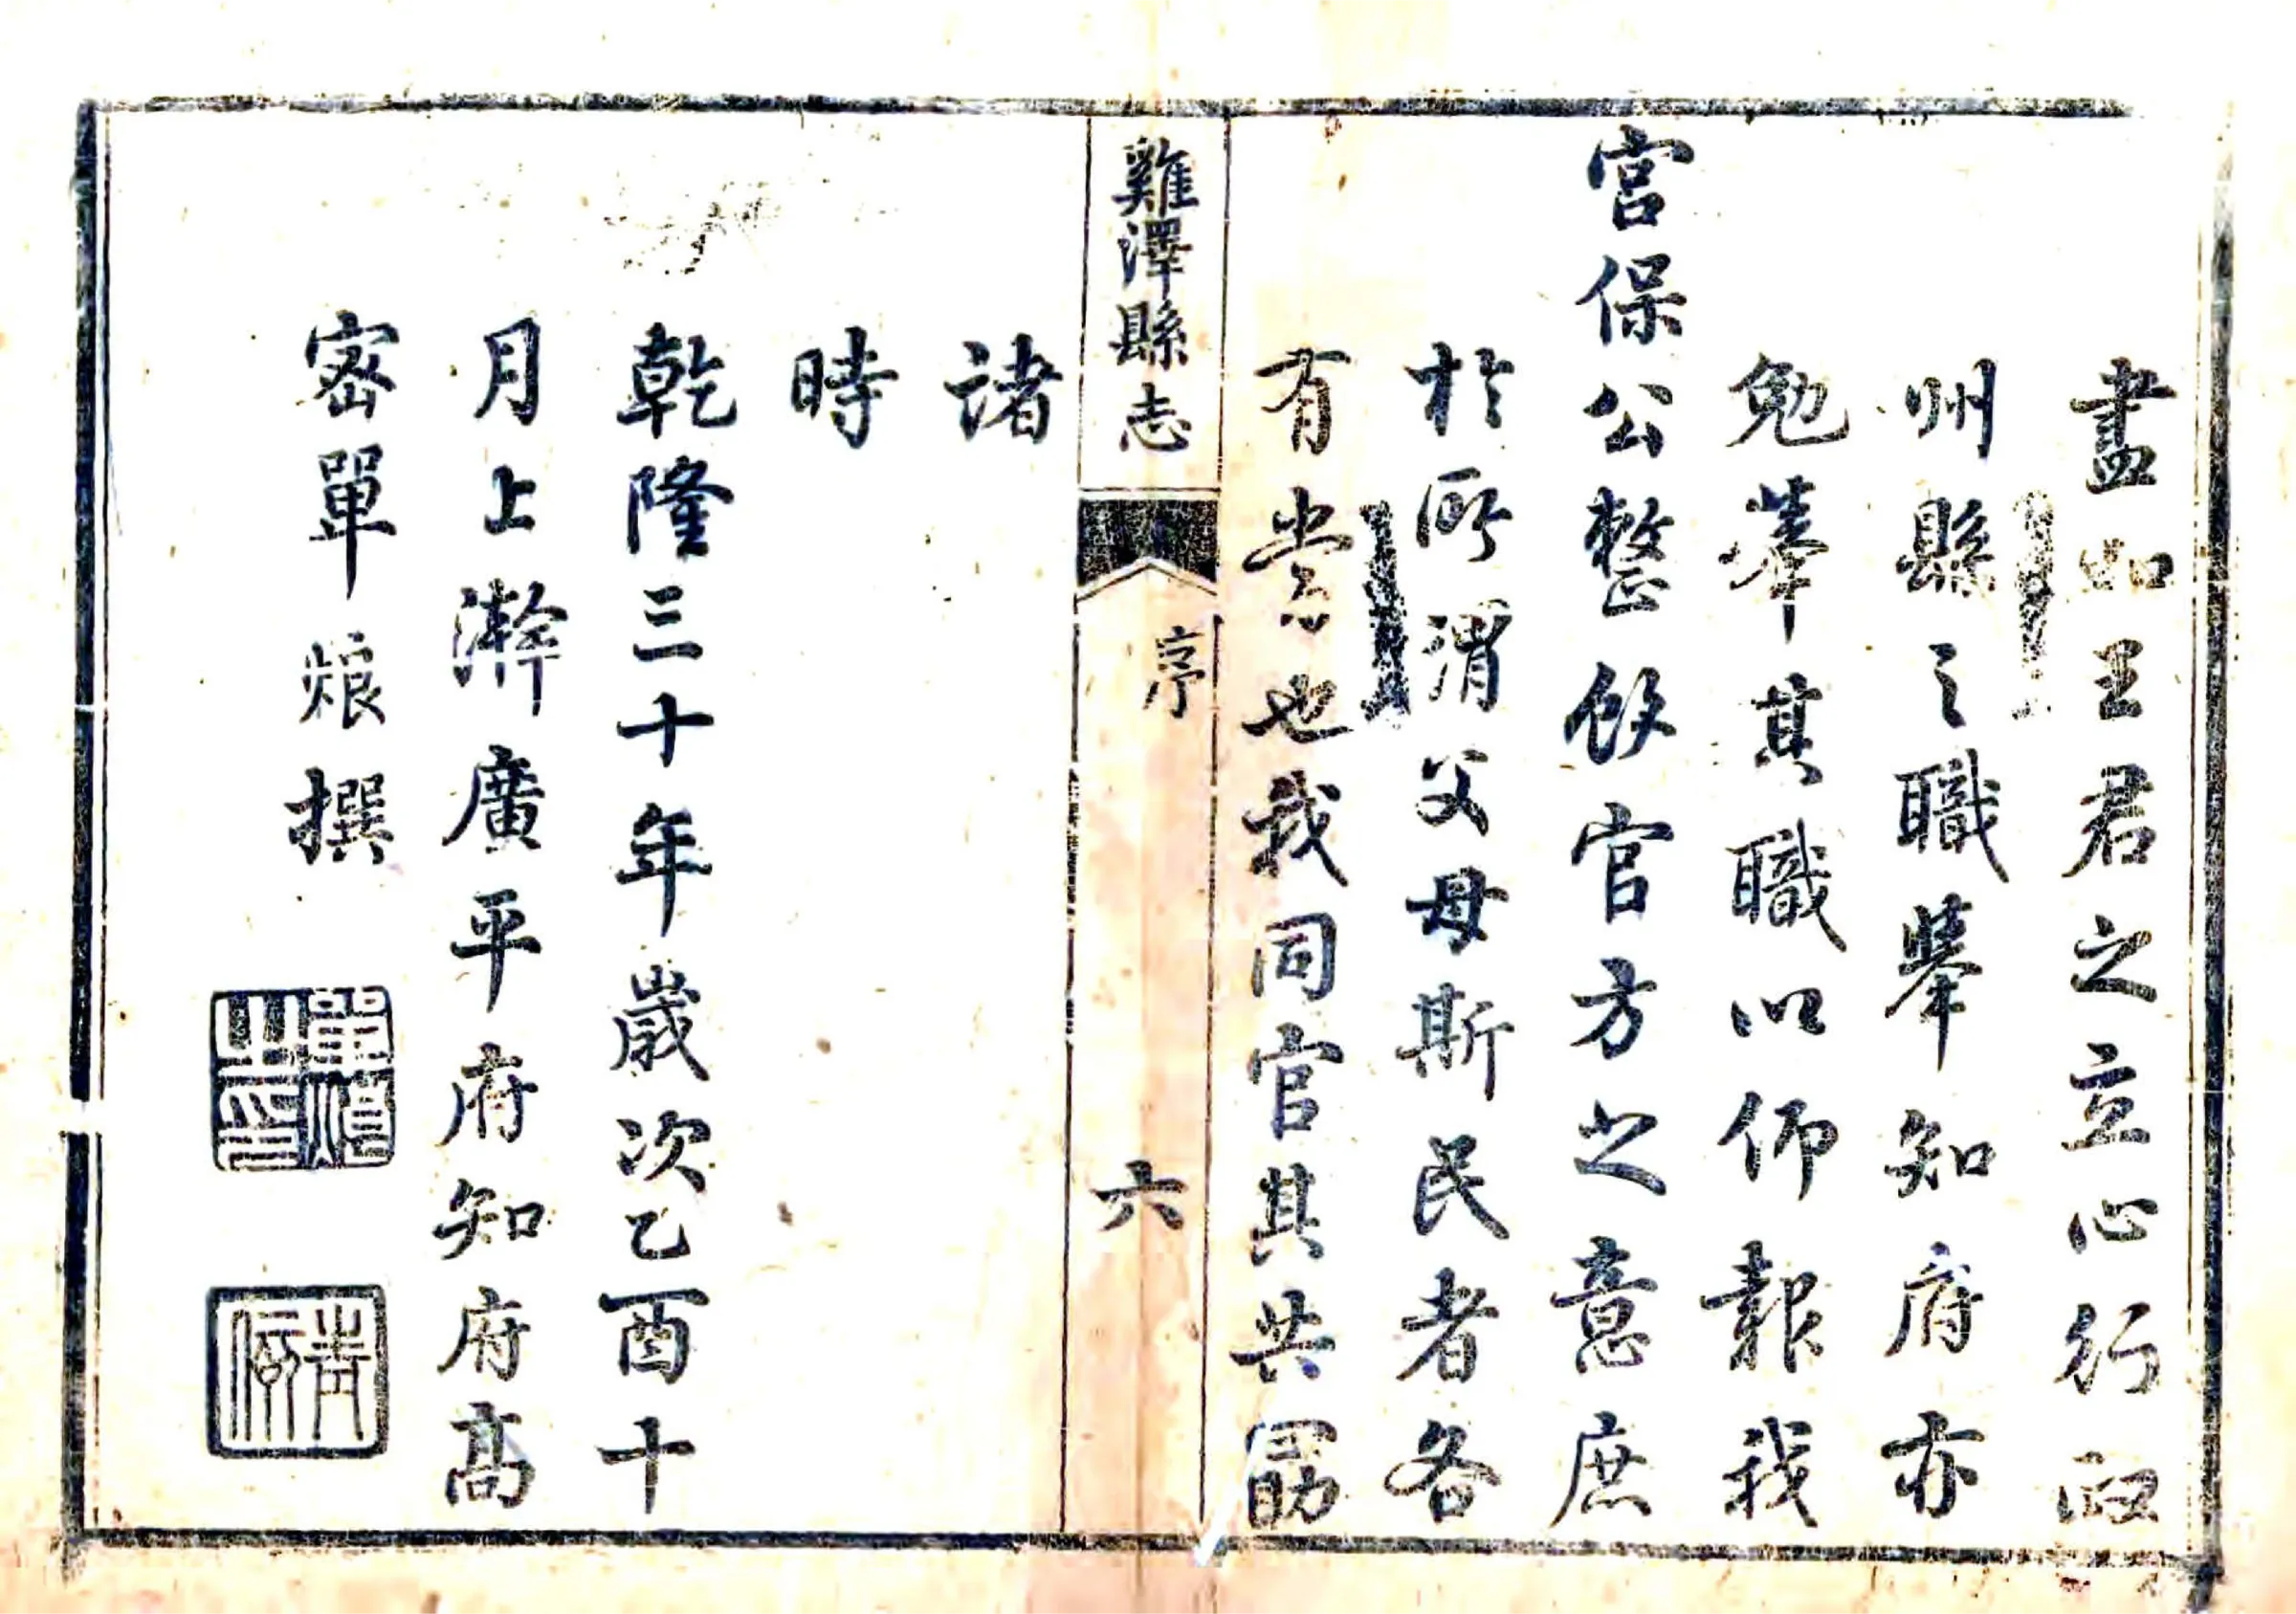 盡如王君之立心行政
州縣之職舉知府亦
勉舉其職以仰報我
宮保公整飭官方之意庶
於所謂父母斯民者各
有當也我同官其共勗
諸
雞澤縣志
序
六
時
乾隆三十年歲次乙酉十
月上澣廣平府知府高
密單烺撰
單烺之印
青侪